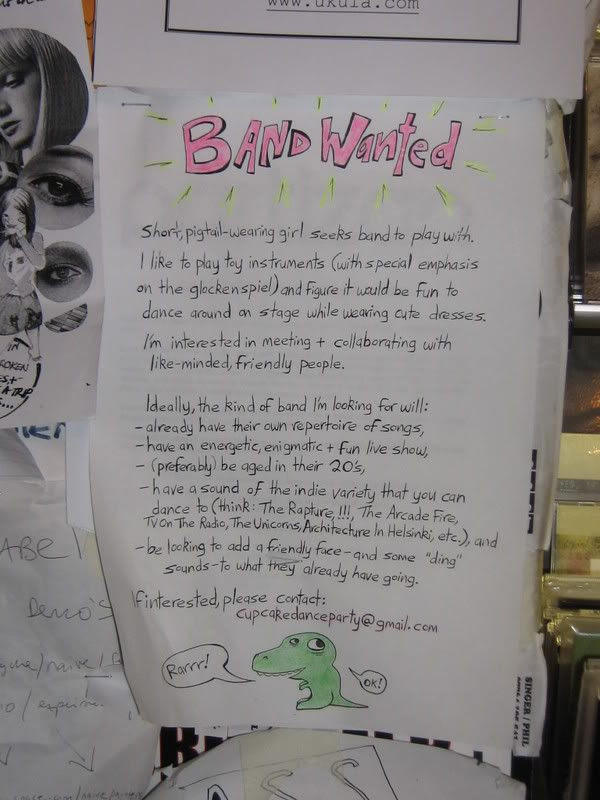 www.ukula.com
BAND Wanted
Short, pigtail-wearing girl seeks band to play with.
I like to play toy instruments (with special emphasis
on the glockenspiel) and figure it would be fun to
dance around on stage while wearing cute dresses.
I'm interested in meeting + collaborating with
like-minded, friendly people.
Ideally, the kind of band I'm looking for will:
- already have their own repertoire of songs,
- have an energetic, enigmatic + fun live show,
- (preferably) be aged in their 20's,
- have a sound of the indie variety that you can
dance to (think: The Rapture, !!!, The Arcade Fire,
TV On The Radio, The Unicorns, Architecture In Helsinki, etc.), and
- be looking to add a friendly face - and some "ding"
sounds - to what they already have going.
If interested, please contact:
cupcakedanceparty@gmail.com
Rarrr!
OK!
IN
SINGER / PHIL
DEMO'S